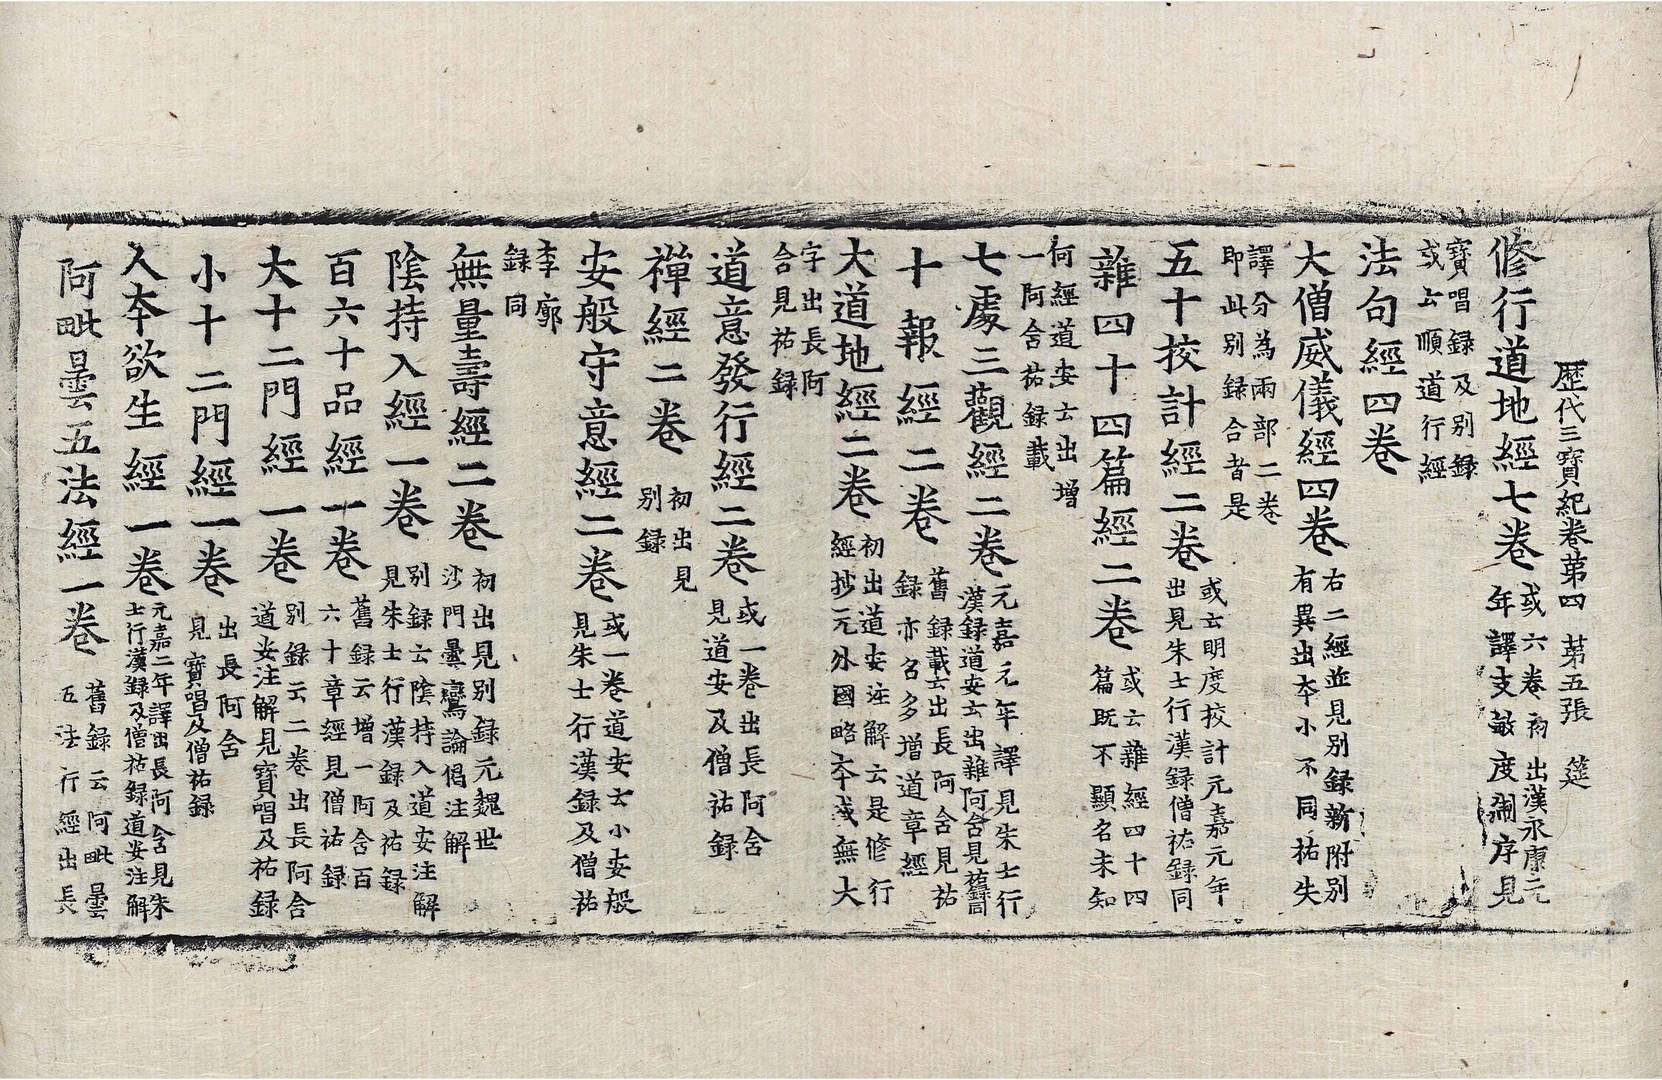 歷代三寶紀卷第四　第五張　筵
修行道地經七卷或六卷初出漢永康元
年譯支敏度制序見
寶唱録及別録
或云順道行經
法句經四卷
大僧威儀經四卷右二經並見別録新附別
有異出本小不同祐失
譯分為兩部二卷
即此別録合者是
五十挍計經二卷或云明度挍計元嘉元年
出見朱士行漢録僧祐録同
雜四十四篇經二卷或云雜經四十四
篇既不顯名未知
何經道安云出增
一阿含祐録載
七處三觀經二卷元嘉元年譯見朱士行
漢録道安云出雜阿含見祐録同
十報經二卷舊録載云出長阿含見祐
録亦名多增道章經
大道地經二卷初出道安注解云是修行
經抄元外國略本或無大
字出長阿
含見祐録
道意發行經二卷或一卷出長阿含
見道安及僧祐録
禪經二卷初出見
別録
安般守意經二卷或一卷道安云小安般
見朱士行漢録及僧祐
李廓
録同
無量壽經二卷初出見別録元魏世
沙門曇鸞論偈注解
陰持入經一卷別録云陰持入道安注解
見朱士行漢録及祐録
百六十品經一卷舊録云增一阿含百
六十章經見僧祐録
大十二門經一卷別録云二卷出長阿含
道安注解見寶唱及祐録
小十二門經一卷出長阿含
見寶唱及僧祐録
人本欲生經一卷元嘉二年譯出長阿含見朱
士行漢録及僧祐録道安注解
阿毗曇五法經一卷舊録云阿毗曇
五法行經出長